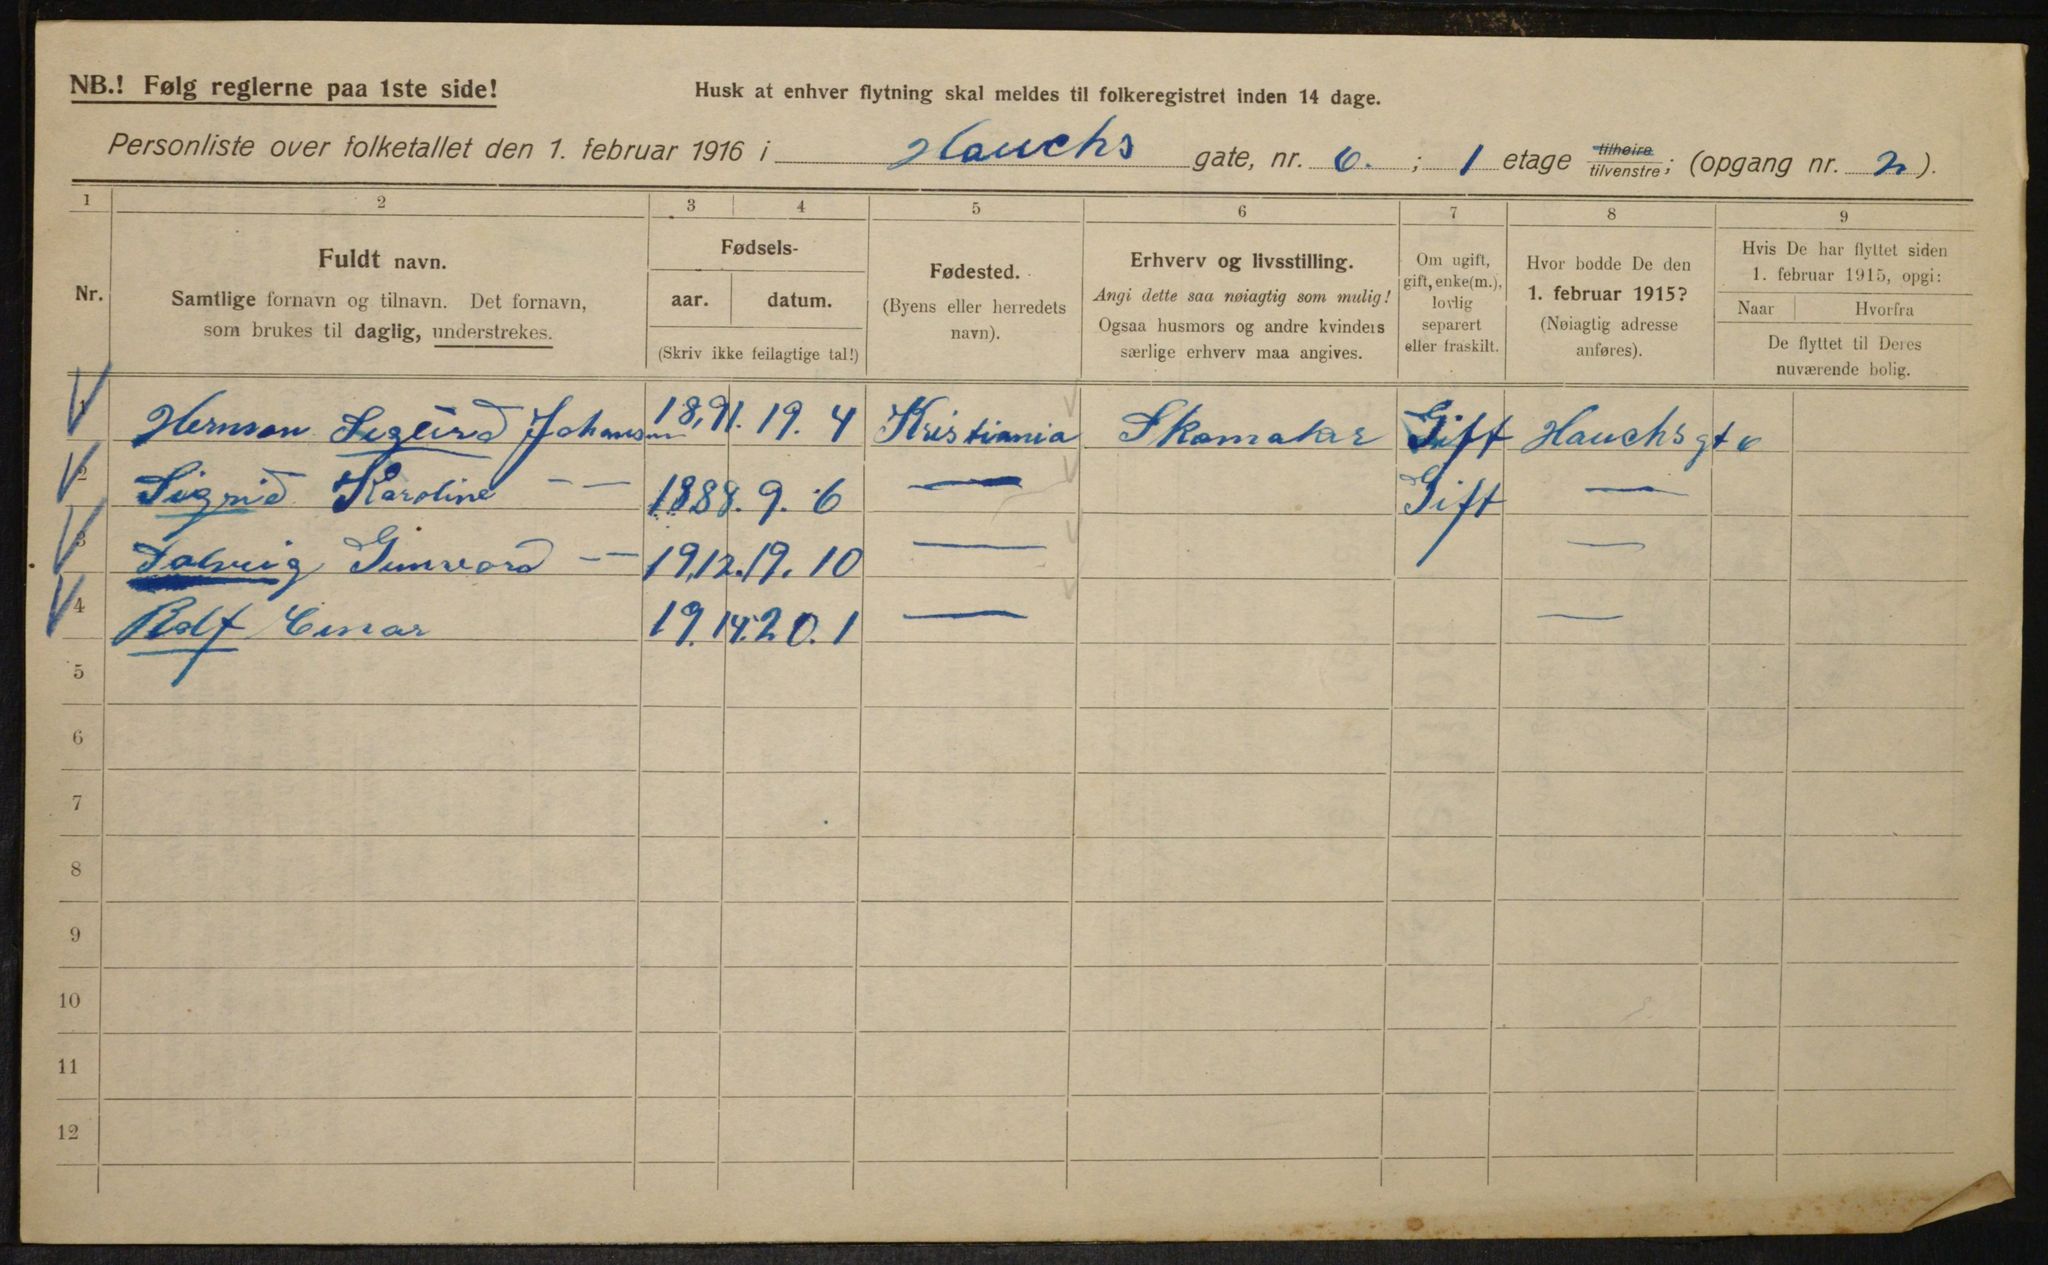 NB.! Følg reglerne paa 1ste side!
Husk at enhver flytning skal meldes til folkeregistret inden 14 dage.
Personliste over folketallet den 1. februar 1916 i Hauchs gate, nr. 6. ; 1 etage tilhøire tilvenstre; (opgang nr. 2).
1 2 3 4 5 6 7 8 9
Nr.
Fuldt navn.
Samtlige fornavn og tilnavn. Det fornavn,
som brukes til daglig, understrekes.
Fødsels-
aar. datum.
(Skriv ikke feilagtige tal!)
Fødested.
(Byens eller herredets
navn).
Erhverv og livsstilling.
Angi dette saa nøiagtig som mulig!
Ogsaa husmors og andre kvinders
særlige erhverv maa angives.
Om ugift,
gift, enke(m.),
lovlig
separert
eller fraskilt.
Hvor bodde De den
1. februar 1915?
(Nøiagtig adresse
anføres).
Hvis De har flyttet siden
1. februar 1915, opgi:
Naar Hvorfra
De flyttet til Deres
nuværende bolig.
1 Herman Sigurd Johansen 18,91. 19. 4 Kristiania Skomaker Gift Hauchsgt 6
2 Sigrid Karoline — — 1888. 9. 6 — Gift —
3 Solveig Gunvord — 19,12. 19. 10 — —
4 Rolf Einar 19.14. 20. 1 — —
5
6
7
8
9
10
11
12